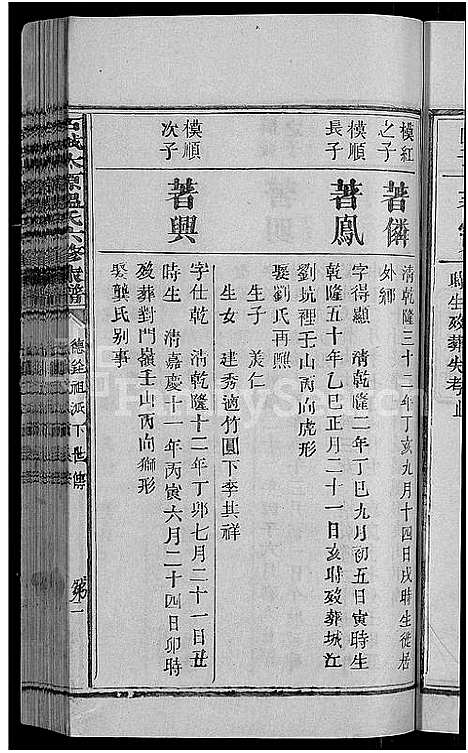 時生歿葬失考止
模紅之子
著僯
清乾隆三十二年丁亥九月十四日戌時生徙居
外鄉
模順長子
著鳳
字得顯 清乾隆二年丁巳九月初五日寅時生
乾隆五十年乙巳正月二十一日亥時歿葬城江
劉坑裡壬山丙向虎形
娶劉氏再醮
生子 羙仁
生女 建秀適竹園下李其祥
模順次子
著興
字仕乾 清乾隆十二年丁卯七月二十一日丑
時生 清嘉慶十一年丙寅六月二十四日卯時
歿葬對門嶺壬山丙向獅形
娶龔氏别事
石城太原溫氏六修族譜
德銓祖派下世傳
FamilySearch